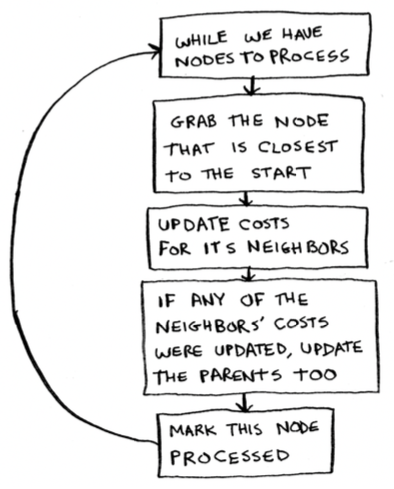 WHILE WE HAVE
NODES TO PROCESS
GRAB THE NODE
THAT IS CLOSEST
TO THE START
UPDATE COSTS
FOR ITS NEIGHBORS
IF ANY OF THE
NEIGHBORS' COSTS
WERE UPDATED, UPDATE
THE PARENTS TOO
MARK THIS NODE
PROCESSED